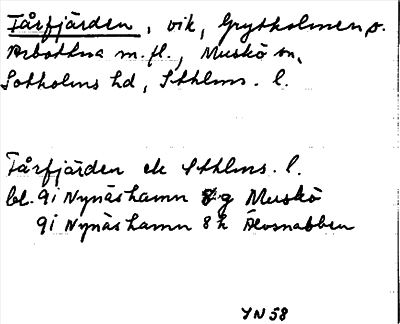 Fårfjärden, vik, Grytholmen o.
Arbottna m.fl., Muskö sn,
Sotholms hd, Sthlms. l.
Fårfjärden ek Sthlms. l.
bl. 9i Nynäshamn 8g Muskö
9i Nynäshamn 8h Älvsnabben
YN58